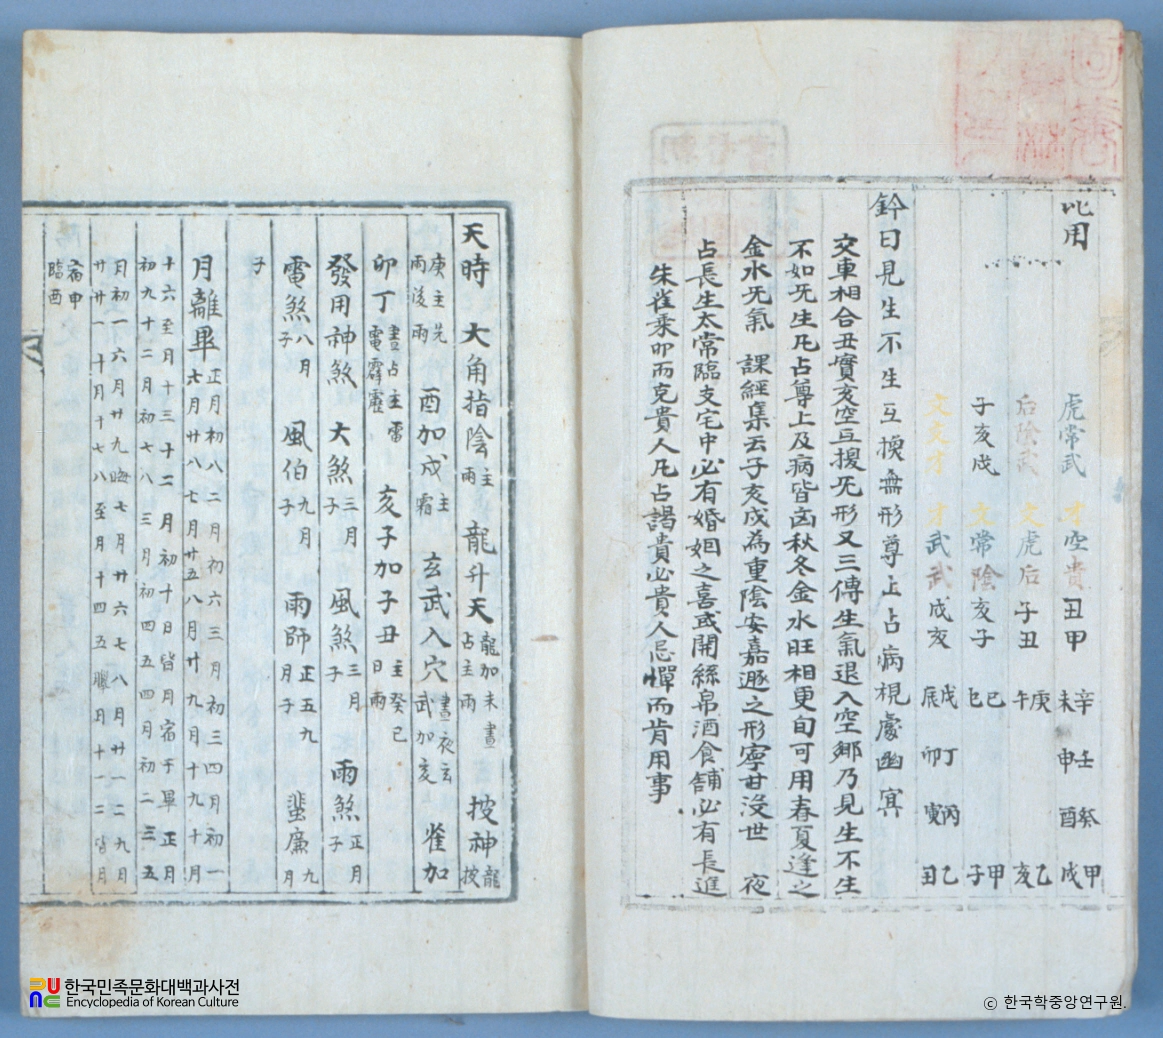 比用
虎常武 才空貴 丑甲 未辛 申壬 酉癸 戌甲
后陰武 文虎后 子丑 午庚 亥乙
子亥戌 文常陰 亥子 巳己 子甲
文文才 才武武 戌亥 辰戊 卯丁 寅丙 丑乙
鈐曰見生不生互換無形尊上占病視處幽冥
交車相合丑實亥空互援旡形又三傳生氣退入空鄉乃見生不生
不如旡生凡占尊上及病皆凶秋冬金水旺相更旬可用春夏逢之
金水旡氣 課經集云子亥戌為重陰安嘉遯之形寧甘沒世 夜
占長生太常臨支宅中必有婚姻之喜或開絲帛酒食舖必有長進
朱雀乘卯而克貴人凡占謁貴必貴人忌憚而肯用事
天時 大角指陰主雨 龍升天龍加未晝占主雨 按神龍按
庚主先雨後雨 酉加戌主霜 玄武入穴晝夜玄武加亥 雀加
卯丁晝占主雷電霹靂 亥子加子丑主癸己日雨
發用神煞 大煞三月子 風煞三月子 雨煞正月子
電煞八月子 風伯九月子 雨師正五九月子 蜚廉九月
子
月離畢正月初八二月初六三月初三四月初一
六月廿八七月廿五八月廿九月十九十月
十六至月十三十二月初十日皆月宿于畢正月
初九十二月初七八三月初四五四月初二三五
月初一六月廿九晦七月廿六七八月廿一二九月
廿廿一十月十七八至月十四五臘月十一二皆月
臨酉
한국민족문화대백과사전
Encyclopedia of Korean Culture
© 한국학중앙연구원.